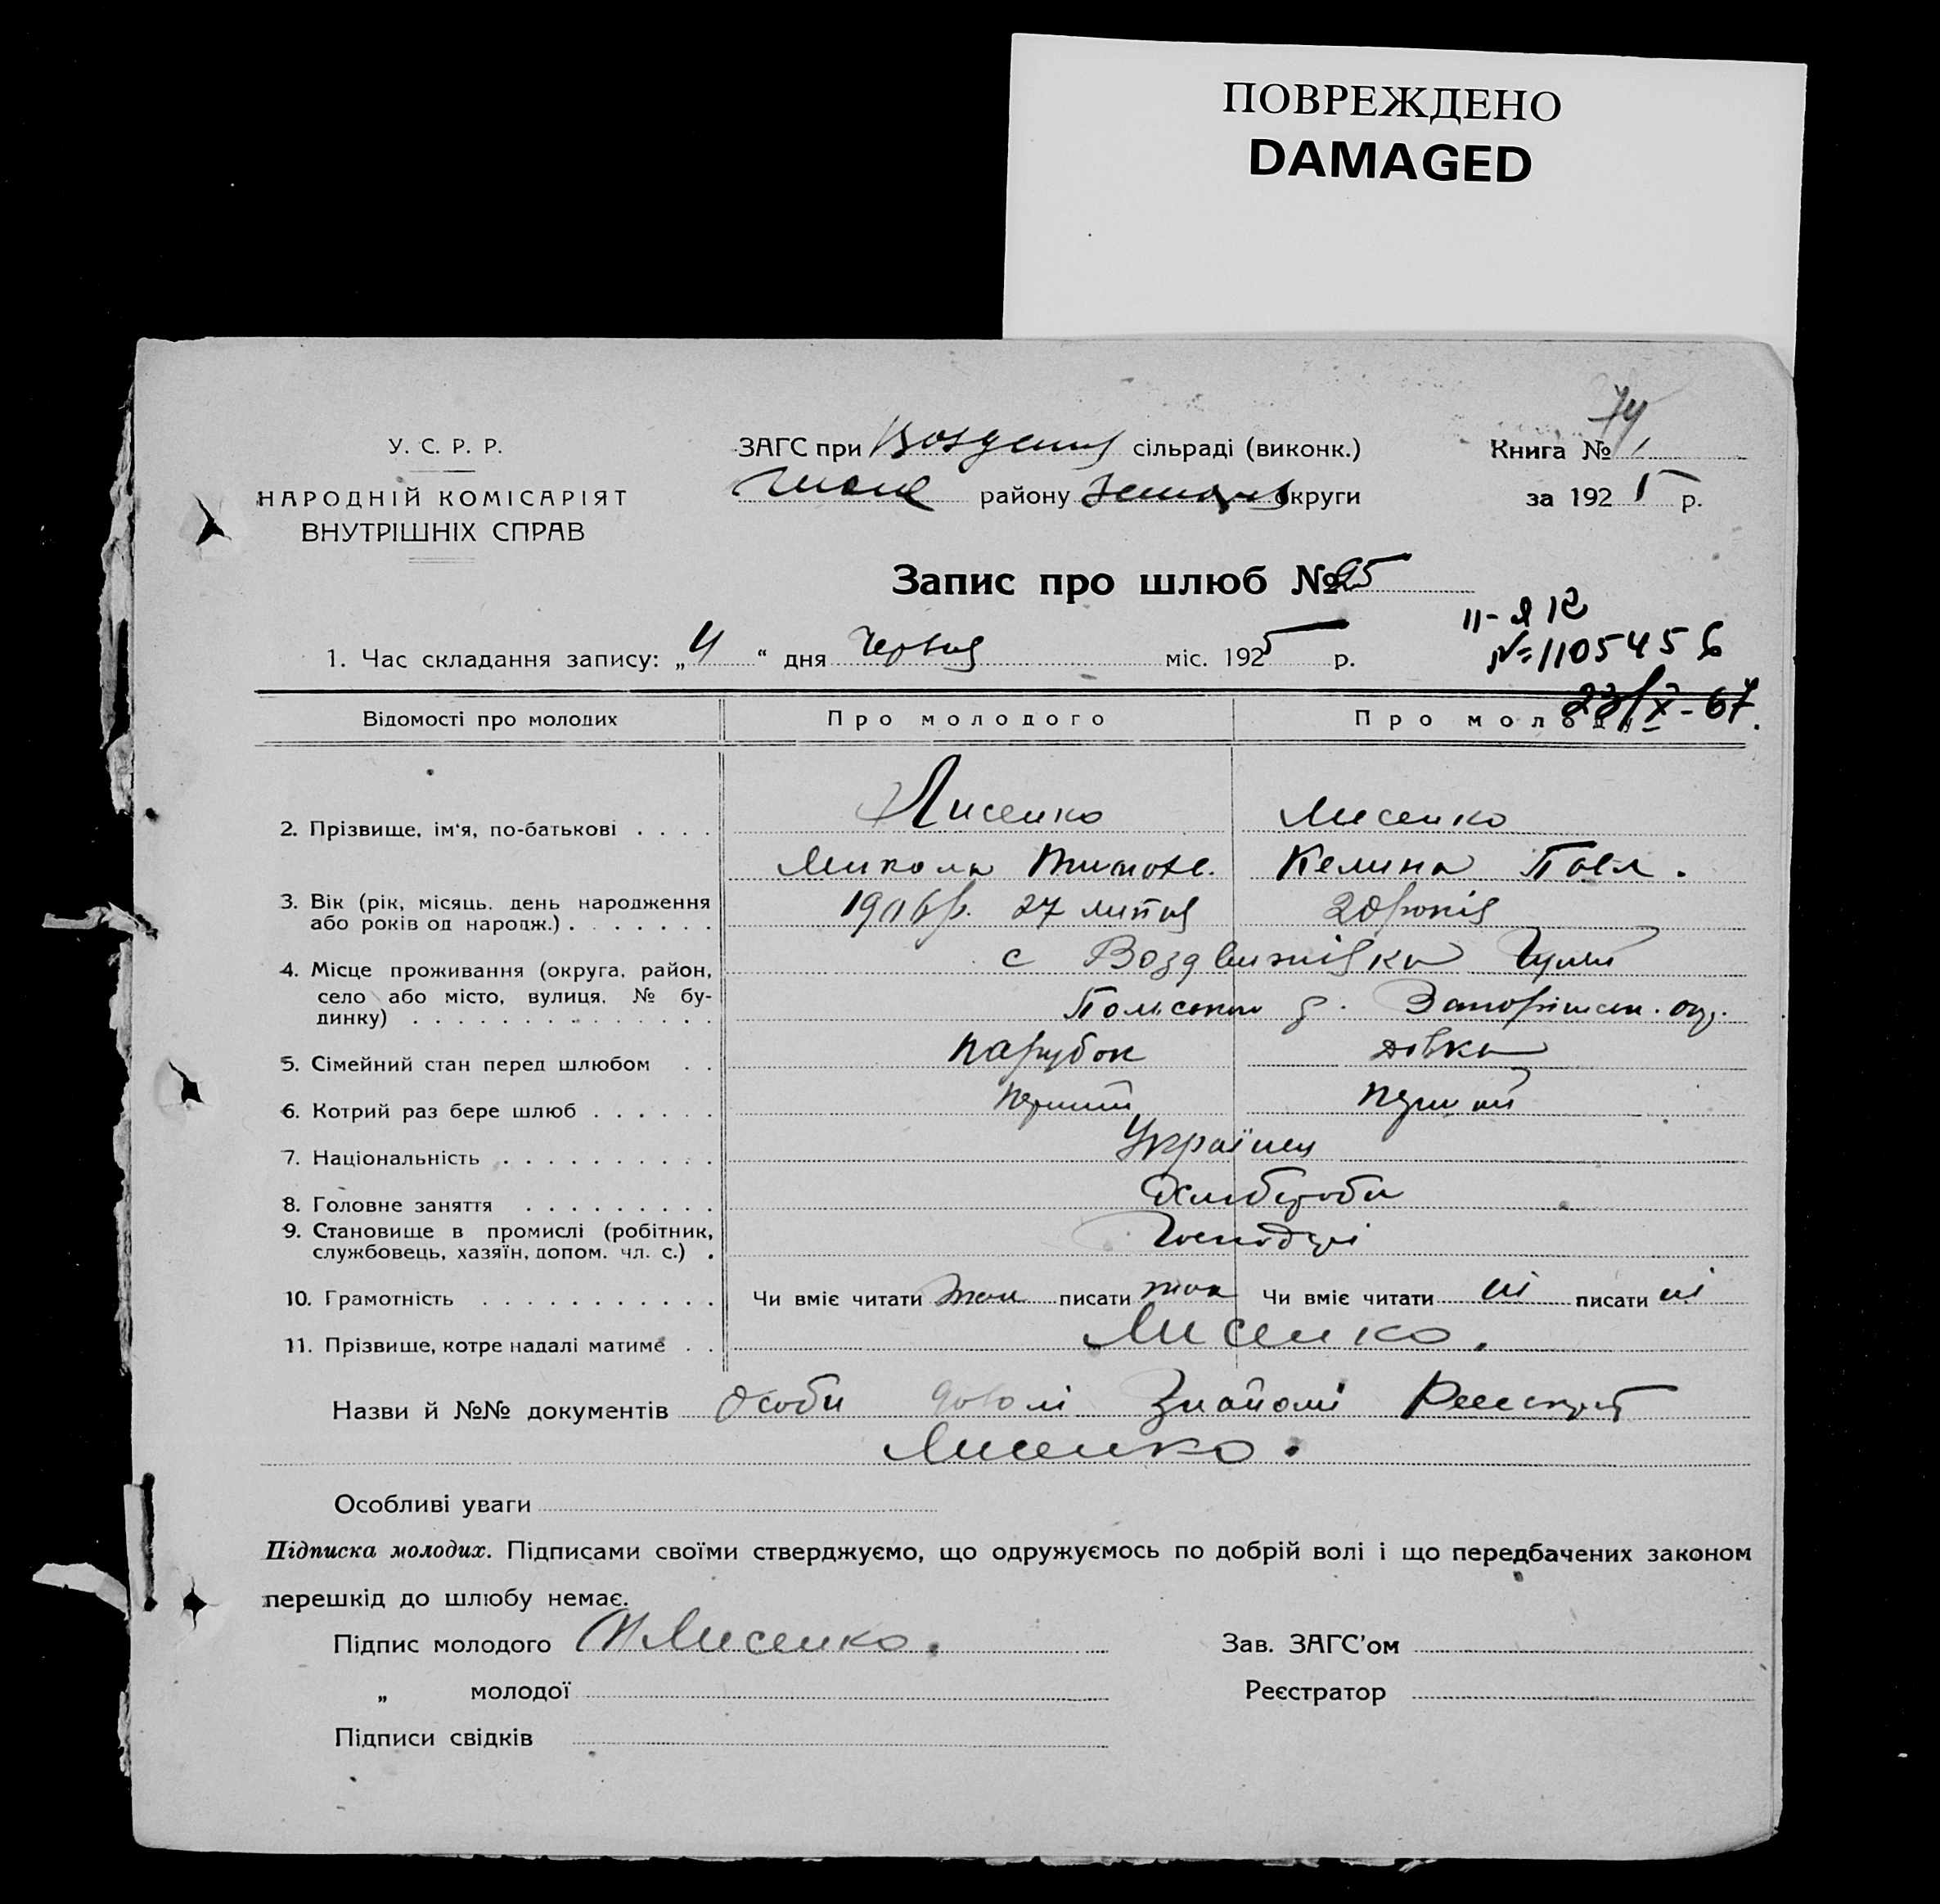 ПОВРЕЖДЕНО
DAMAGED
74
У. С. Р. Р.
НАРОДНІЙ КОМІСАРІЯТ
ВНУТРІШНІХ СПРАВ
ЗАГС при сільраді (виконк.)
району округи
Книга №
за 1925 р.
Запис про шлюб № 25
II-ЯР
№ 1105456
23/X-67.
1. Час складання запису: „ “ дня Червня міс. 1925 р.
Відомості про молодих Про молодого Про молоду
2. Прізвище, ім‘я, по-батькові . . . . Лисенко Лисенко
Микола Тимохв. Келина Павл.
3. Вік (рік, місяць, день народження або років од народж.) . . . . . . . 1906 р. 27 липня 20 років
4. Місце проживання (округа, район, село або місто, вулиця, № будинку) . . . . . . . . . . . . . . с Воздвижнівка Гуляй
Польського р. Запоріжськ. окр.
5. Сімейний стан перед шлюбом . . парубок дівка
6. Котрий раз бере шлюб . . . . . . перший перший
7. Національність . . . . . . . . . . Українці
8. Головне заняття . . . . . . . . . Хлібороби
9. Становище в промислі (робітник, службовець, хазяїн, допом. чл. с.) . Господарі
10. Грамотність . . . . . . . . . . . Чи вміє читати так писати так Чи вміє читати ні писати ні
11. Прізвище, котре надалі матиме . . Лисенко.
Назви й №№ документів Особи доволі знайомі
Лисенко.
Особливі уваги
Підписка молодих. Підписами своїми стверджуємо, що одружуємось по добрій волі і що передбачених законом
перешкід до шлюбу немає.
Підпис молодого Н Лисенко. Зав. ЗАГС’ом
„ молодої Реєстратор
Підписи свідків